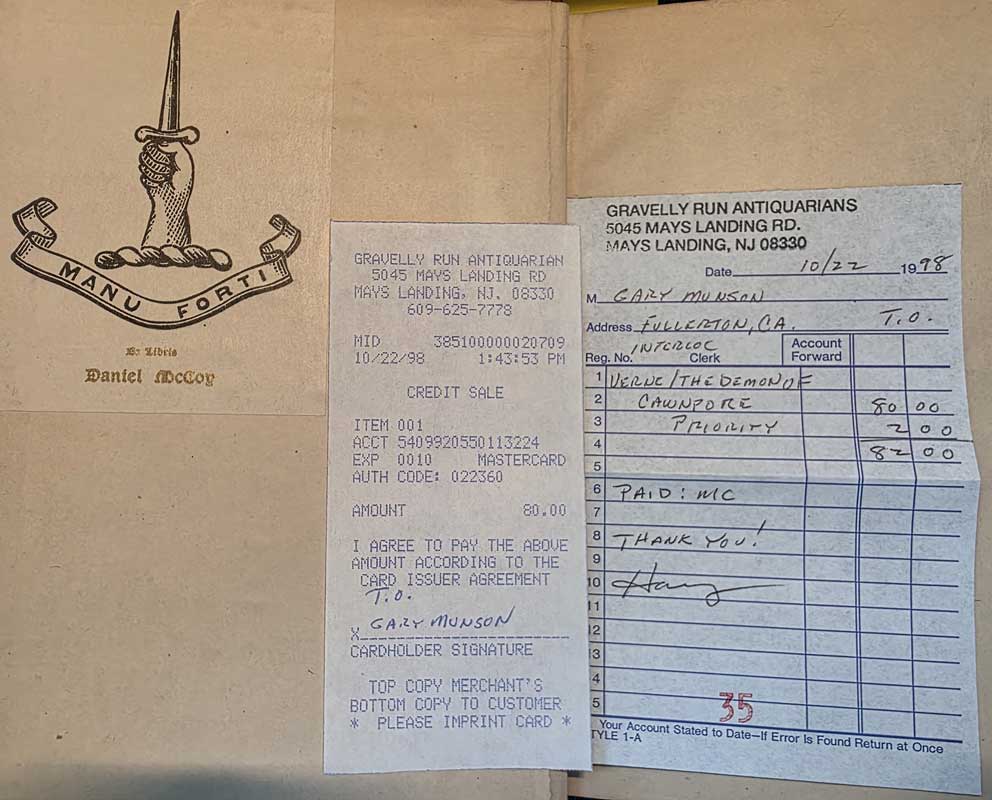 MANU FORTI
Ex Libris
Daniel McCoy
GRAVELLY RUN ANTIQUARIAN
5045 MAYS LANDING RD
MAYS LANDING, NJ. 08330
609-625-7778
MID 385100000020709
10/22/98 1:43:53 PM
CREDIT SALE
ITEM 001
ACCT 5409920550113224
EXP 0010 MASTERCARD
AUTH CODE: 022360
AMOUNT 80.00
I AGREE TO PAY THE ABOVE
AMOUNT ACCORDING TO THE
CARD ISSUER AGREEMENT
T.O.
GARY MUNSON
X
CARDHOLDER SIGNATURE
TOP COPY MERCHANT'S
BOTTOM COPY TO CUSTOMER
* PLEASE IMPRINT CARD *
GRAVELLY RUN ANTIQUARIANS
5045 MAYS LANDING RD.
MAYS LANDING, NJ 08330
Date 10/22 1998
M GARY MUNSON
Address FULLERTON, CA. T.O.
INTERLOC
Reg. No. Clerk Account Forward
1 VERNE/THE DEMON OF
2 CAWNPORE 80 00
3 PRIORITY 2 00
4 82 00
5
6 PAID: MC
7
8 THANK YOU!
9
10
11
12
3
4
5
35
Your Account Stated to Date—If Error Is Found Return at Once
TYLE 1-A